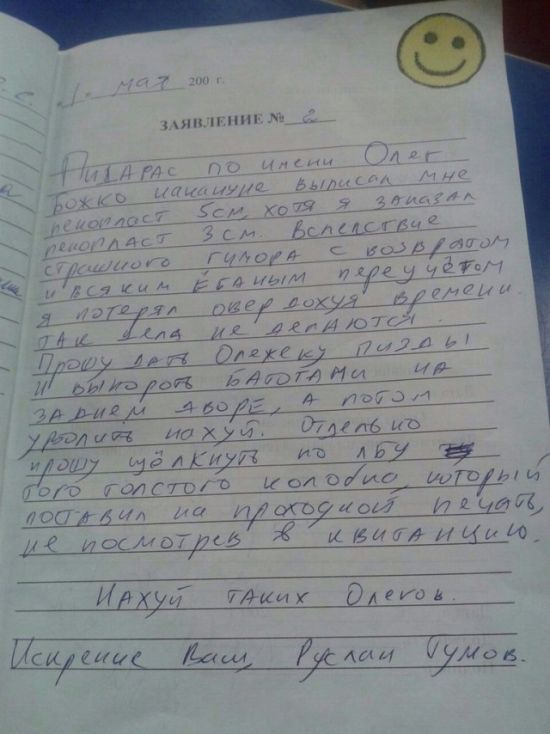 1. мая 200 г.
ЗАЯВЛЕНИЕ № 2
Пидарас по имени Олег
Божко накануне выписал мне
пенопласт 5см, хотя я заказал
пенопласт 3см. Вследствие
страшного гумора с возвратом
и всяким ёбаным переучётом
я потерял овердохуя времени.
Так дела не делаются.
Прошу дать Олежеку пизды
и выпороть батогами на
заднем дворе, а потом
уволить нахуй. Отдельно
прошу щёлкнуть по лбу
того толстого колобка, который
поставил на проходной печать,
не посмотрев в квитанцию.
Нахуй таких Олегов.
Искрение Ваш, Руслан Гумов.